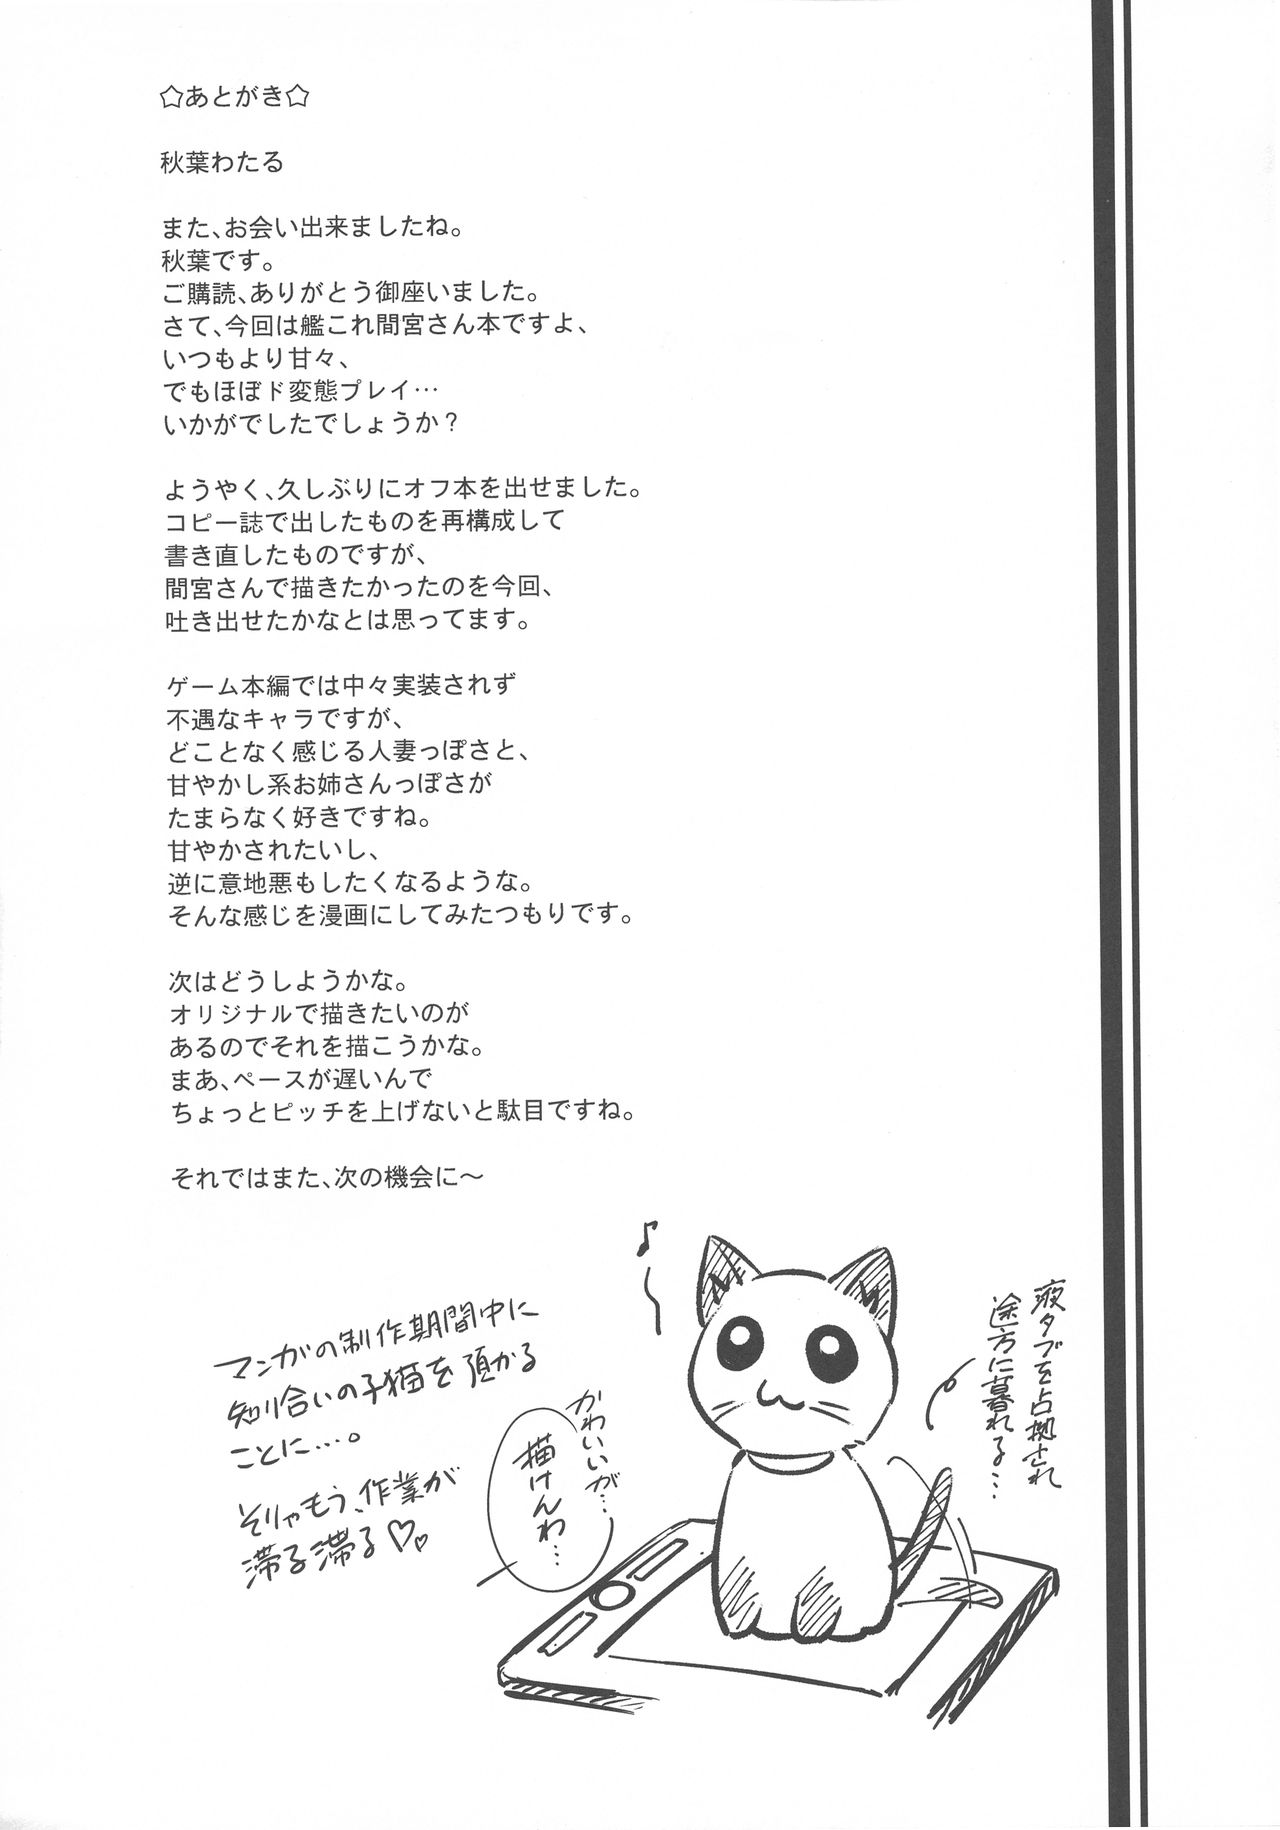 ☆あとがき☆
秋葉わたる
また、お会い出来ましたね。
秋葉です。
ご購読、ありがとう御座いました。
さて、今回は艦これ間宮さん本ですよ、
いつもより甘々、
でもほぼド変態プレイ…
いかがでしたでしょうか?
ようやく、久しぶりにオフ本を出せました。
コピー誌で出したものを再構成して
書き直したものですが、
間宮さんで描きたかったのを今回、
吐き出せたかなとは思ってます。
ゲーム本編では中々実装されず
不遇なキャラですが、
どことなく感じる人妻っぽさと、
甘やかし系お姉さんっぽさが
たまらなく好きですね。
甘やかされたいし、
逆に意地悪もしたくなるような。
そんな感じを漫画にしてみたつもりです。
次はどうしようかな。
オリジナルで描きたいのが
あるのでそれを描こうかな。
まあ、ペースが遅いんで
ちょっとピッチを上げないと駄目ですね。
それではまた、次の機会に〜
マンガの制作期間中に
知り合いの子猫を頂かる
ことに…。
そりゃもう、作業が
滞る滞る♡♡
かわいいが…
描けんわ…
液タブを占拠され
途方に暮れる…